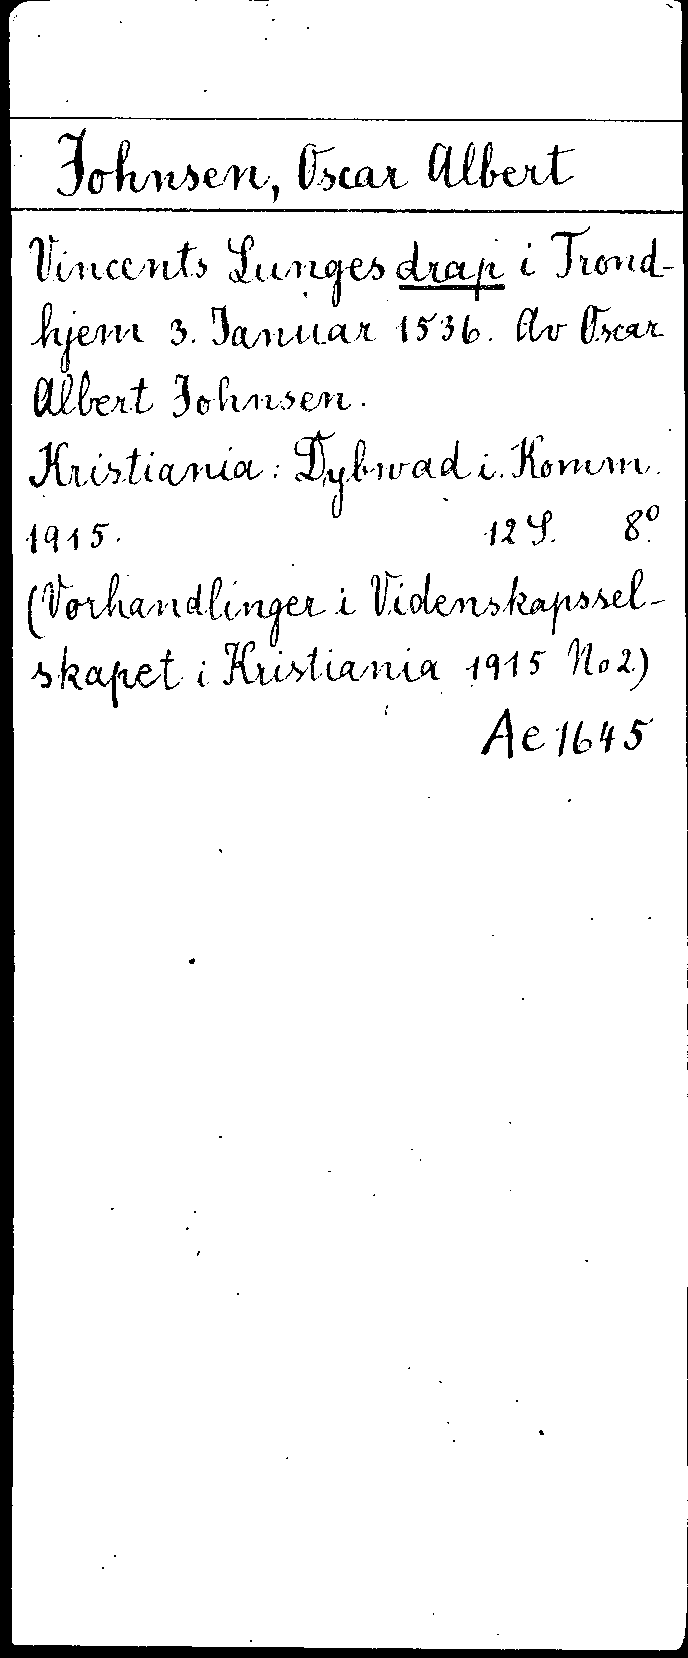 Johnsen, Oscar Albert
Vincents Lunges drap i Trond-
hjem 3. Januar 1536. Av Oscar
Albert Johnsen.
Kristiania: Dybwad i. Komm.
1915. 12 S. 8º.
(Vorhandlinger i Videnskapssel-
skapet i Kristiania 1915 No 2)
Ae 1645